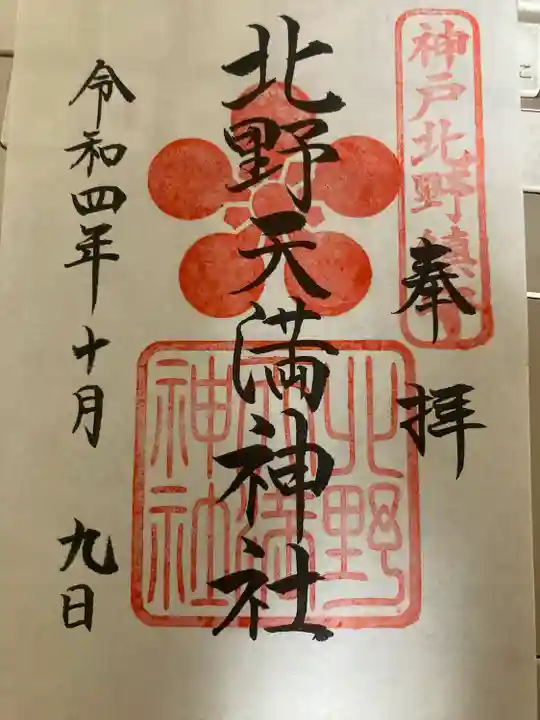 神戸北野鎮守
奉拝
北野天満神社
北野
天満
神社
令和四年十月九日